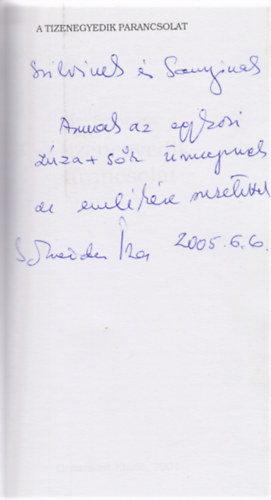 A TIZENEGYEDIK PARANCSOLAT
Szilvinek és Sanyinak
Annak az egykori
búza + sör ünnepnek
az emlékére szeretettel
2005.6.6.